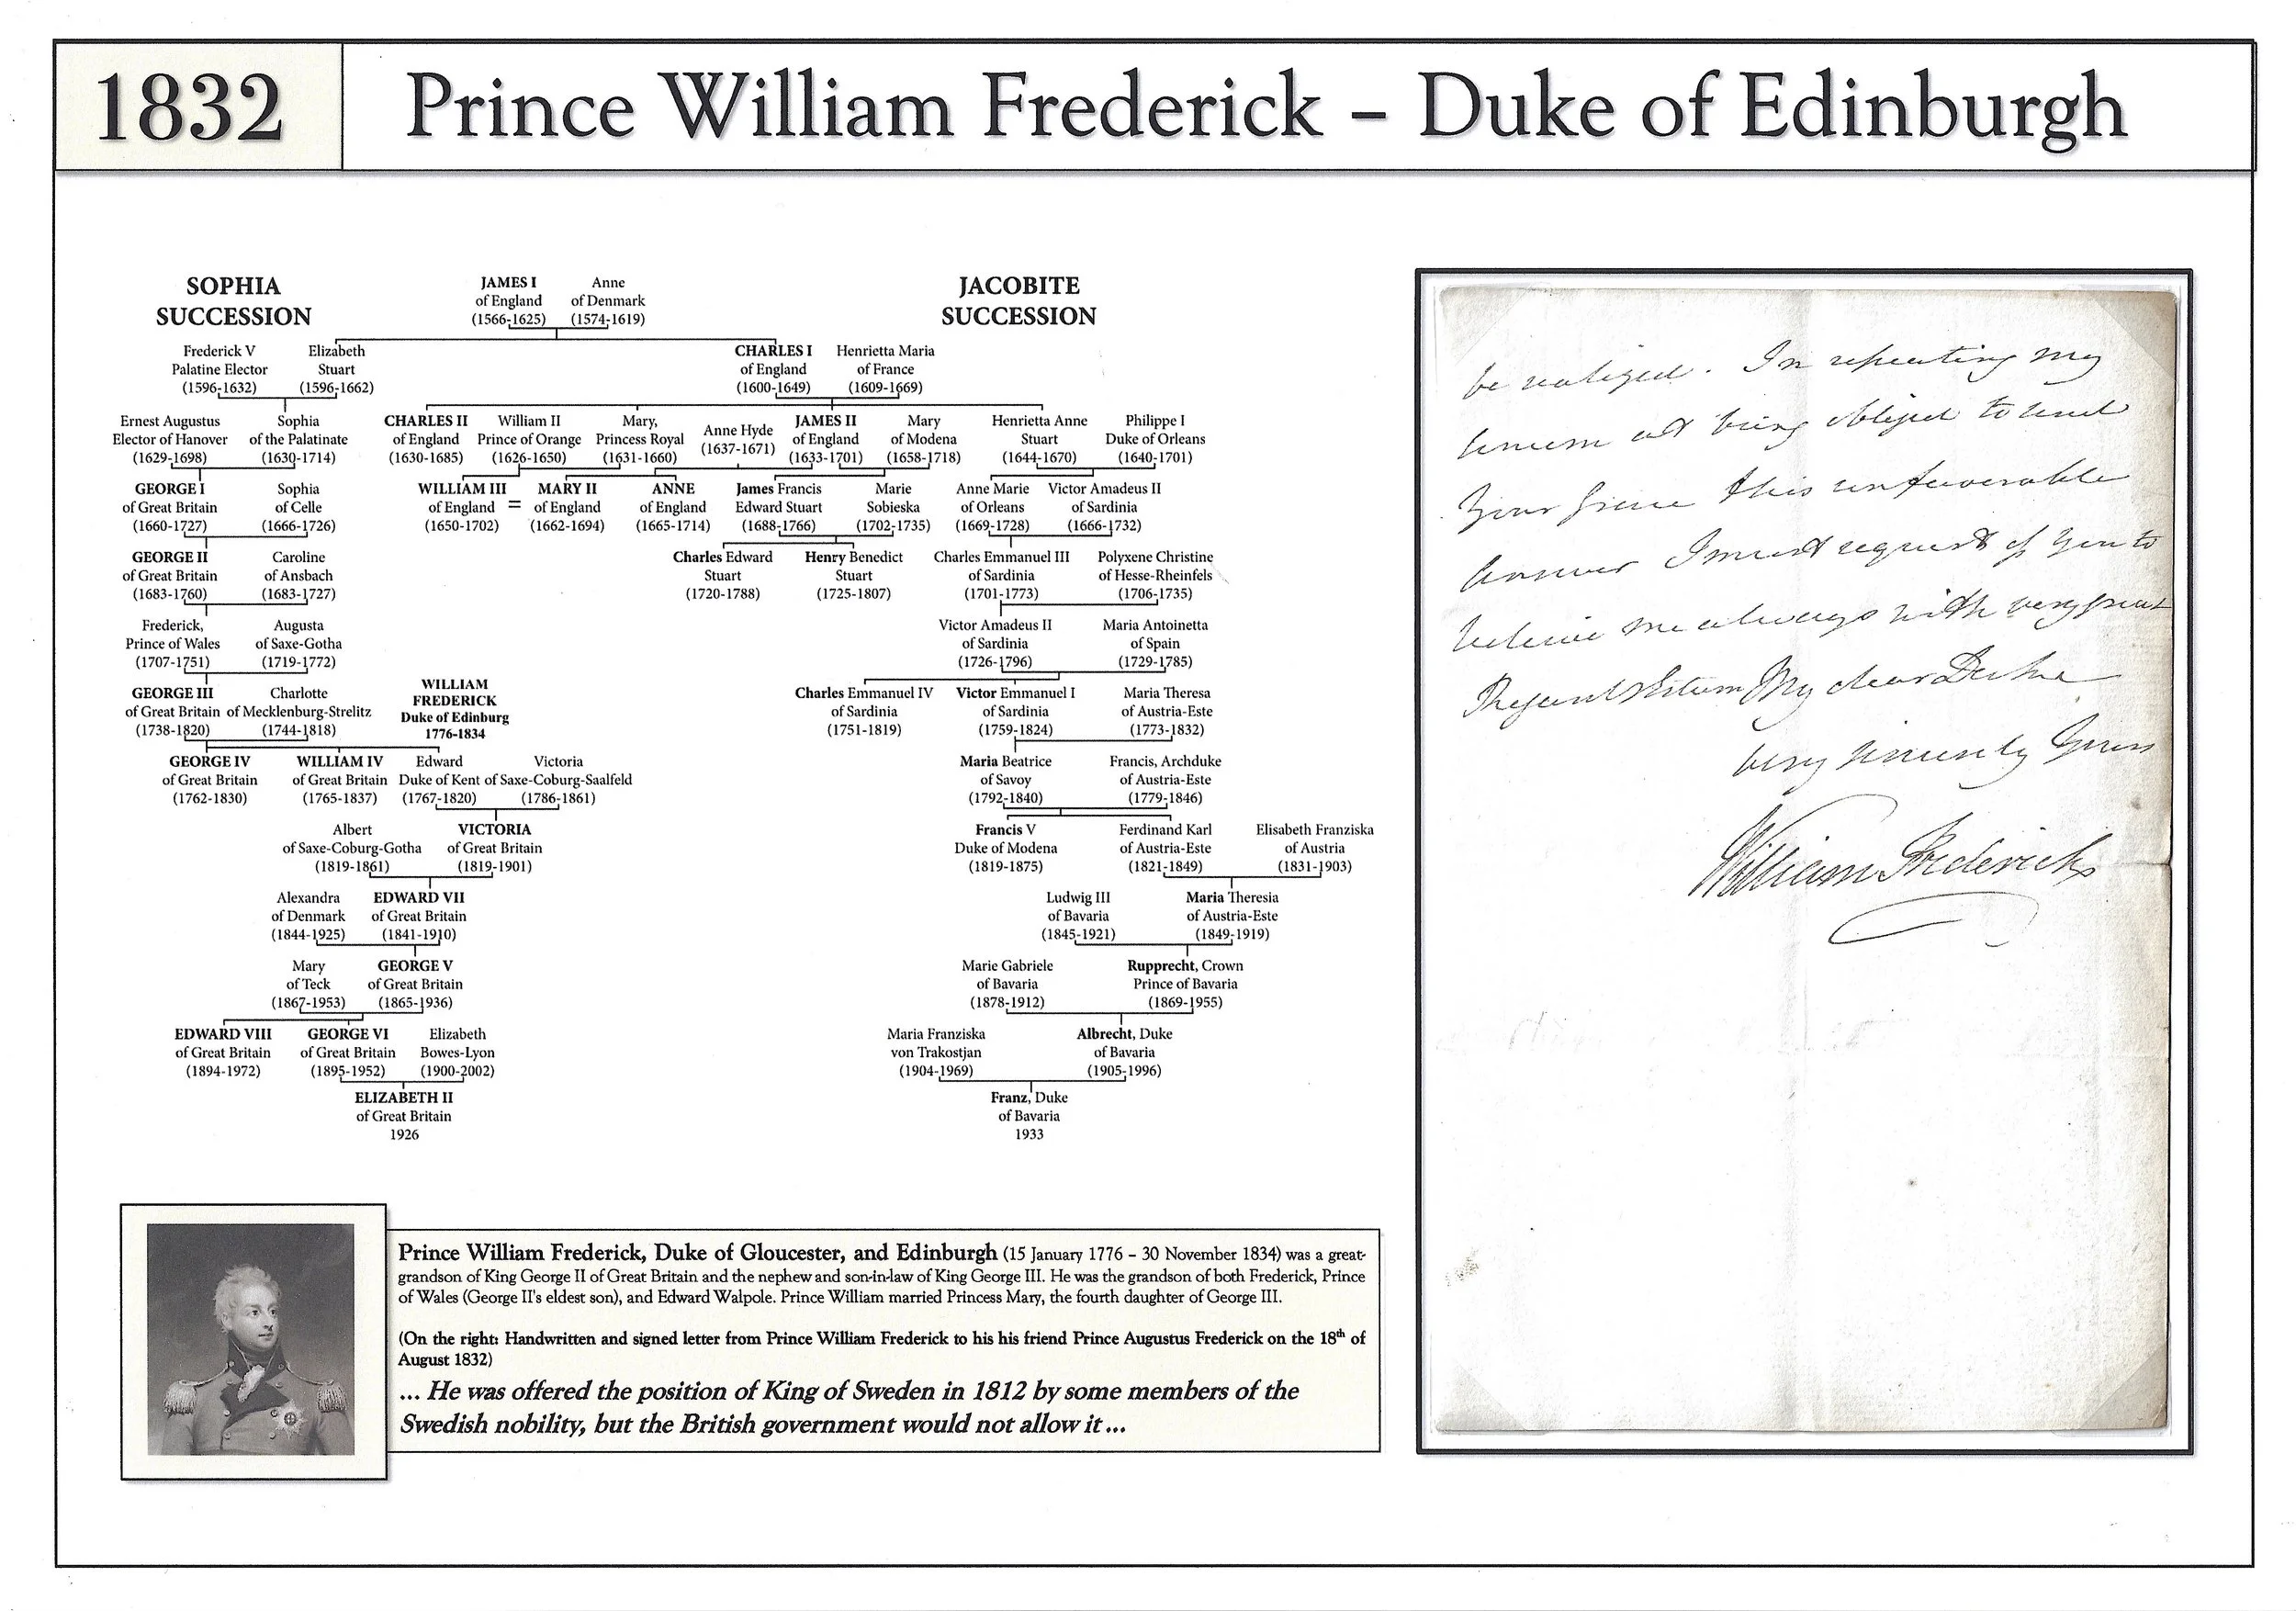 1832
Prince William Frederick – Duke of Edinburgh
SOPHIA
SUCCESSION
JACOBITE
SUCCESSION
JAMES I
of England
(1566-1625)
Anne
of Denmark
(1574-1619)
Frederick V
Palatine Elector
(1596-1632)
Elizabeth
Stuart
(1596-1662)
CHARLES I
of England
(1600-1649)
Henrietta Maria
of France
(1609-1669)
Ernest Augustus
Elector of Hanover
(1629-1698)
Sophia
of the Palatinate
(1630-1714)
CHARLES II
of England
(1630-1685)
William II
Prince of Orange
(1626-1650)
Mary,
Princess Royal
(1631-1660)
Anne Hyde
(1637-1671)
JAMES II
of England
(1633-1701)
Mary
of Modena
(1658-1718)
Henrietta Anne
Stuart
(1644-1670)
Philippe I
Duke of Orleans
(1640-1701)
GEORGE I
of Great Britain
(1660-1727)
Sophia
of Celle
(1666-1726)
WILLIAM III
of England
(1650-1702)
=
MARY II
of England
(1662-1694)
ANNE
of England
(1665-1714)
James Francis
Edward Stuart
(1688-1766)
Marie
Sobieska
(1702-1735)
Anne Marie
of Orleans
(1669-1728)
Victor Amadeus II
of Sardinia
(1666-1732)
GEORGE II
of Great Britain
(1683-1760)
Caroline
of Ansbach
(1683-1727)
Charles Edward
Stuart
(1720-1788)
Henry Benedict
Stuart
(1725-1807)
Charles Emmanuel III
of Sardinia
(1701-1773)
Polyxene Christine
of Hesse-Rheinfels
(1706-1735)
Frederick,
Prince of Wales
(1707-1751)
Augusta
of Saxe-Gotha
(1719-1772)
Victor Amadeus II
of Sardinia
(1726-1796)
Maria Antoinetta
of Spain
(1729-1785)
GEORGE III
of Great Britain
(1738-1820)
Charlotte
of Mecklenburg-Strelitz
(1744-1818)
WILLIAM
FREDERICK
Duke of Edinburg
1776-1834
Charles Emmanuel IV
of Sardinia
(1751-1819)
Victor Emmanuel I
of Sardinia
(1759-1824)
Maria Theresa
of Austria-Este
(1773-1832)
GEORGE IV
of Great Britain
(1762-1830)
WILLIAM IV
of Great Britain
(1765-1837)
Edward
Duke of Kent
(1767-1820)
Victoria
of Saxe-Coburg-Saalfeld
(1786-1861)
Maria Beatrice
of Savoy
(1792-1840)
Francis, Archduke
of Austria-Este
(1779-1846)
Albert
of Saxe-Coburg-Gotha
(1819-1861)
VICTORIA
of Great Britain
(1819-1901)
Francis V
Duke of Modena
(1819-1875)
Ferdinand Karl
of Austria-Este
(1821-1849)
Elisabeth Franziska
of Austria
(1831-1903)
Alexandra
of Denmark
(1844-1925)
EDWARD VII
of Great Britain
(1841-1910)
Ludwig III
of Bavaria
(1845-1921)
Maria Theresia
of Austria-Este
(1849-1919)
Mary
of Teck
(1867-1953)
GEORGE V
of Great Britain
(1865-1936)
Marie Gabriele
of Bavaria
(1878-1912)
Rupprecht, Crown
Prince of Bavaria
(1869-1955)
EDWARD VIII
of Great Britain
(1894-1972)
GEORGE VI
of Great Britain
(1895-1952)
Elizabeth
Bowes-Lyon
(1900-2002)
Maria Franziska
von Trakostjan
(1904-1969)
Albrecht, Duke
of Bavaria
(1905-1996)
ELIZABETH II
of Great Britain
1926
Franz, Duke
of Bavaria
1933
Prince William Frederick, Duke of Gloucester, and Edinburgh (15 January 1776 – 30 November 1834) was a great-
grandson of King George II of Great Britain and the nephew and son-in-law of King George III. He was the grandson of both Frederick, Prince
of Wales (George II's eldest son), and Edward Walpole. Prince William married Princess Mary, the fourth daughter of George III.
(On the right: Handwritten and signed letter from Prince William Frederick to his his friend Prince Augustus Frederick on the 18th of
August 1832)
... He was offered the position of King of Sweden in 1812 by some members of the
Swedish nobility, but the British government would not allow it ...
be realized. In repeating my
concern at being obliged to send
Your Grace this unfavorable
answer I must request of you to
believe me always with very great
Regard & Esteem My dear Duke
very sincerely Yours
William Frederick